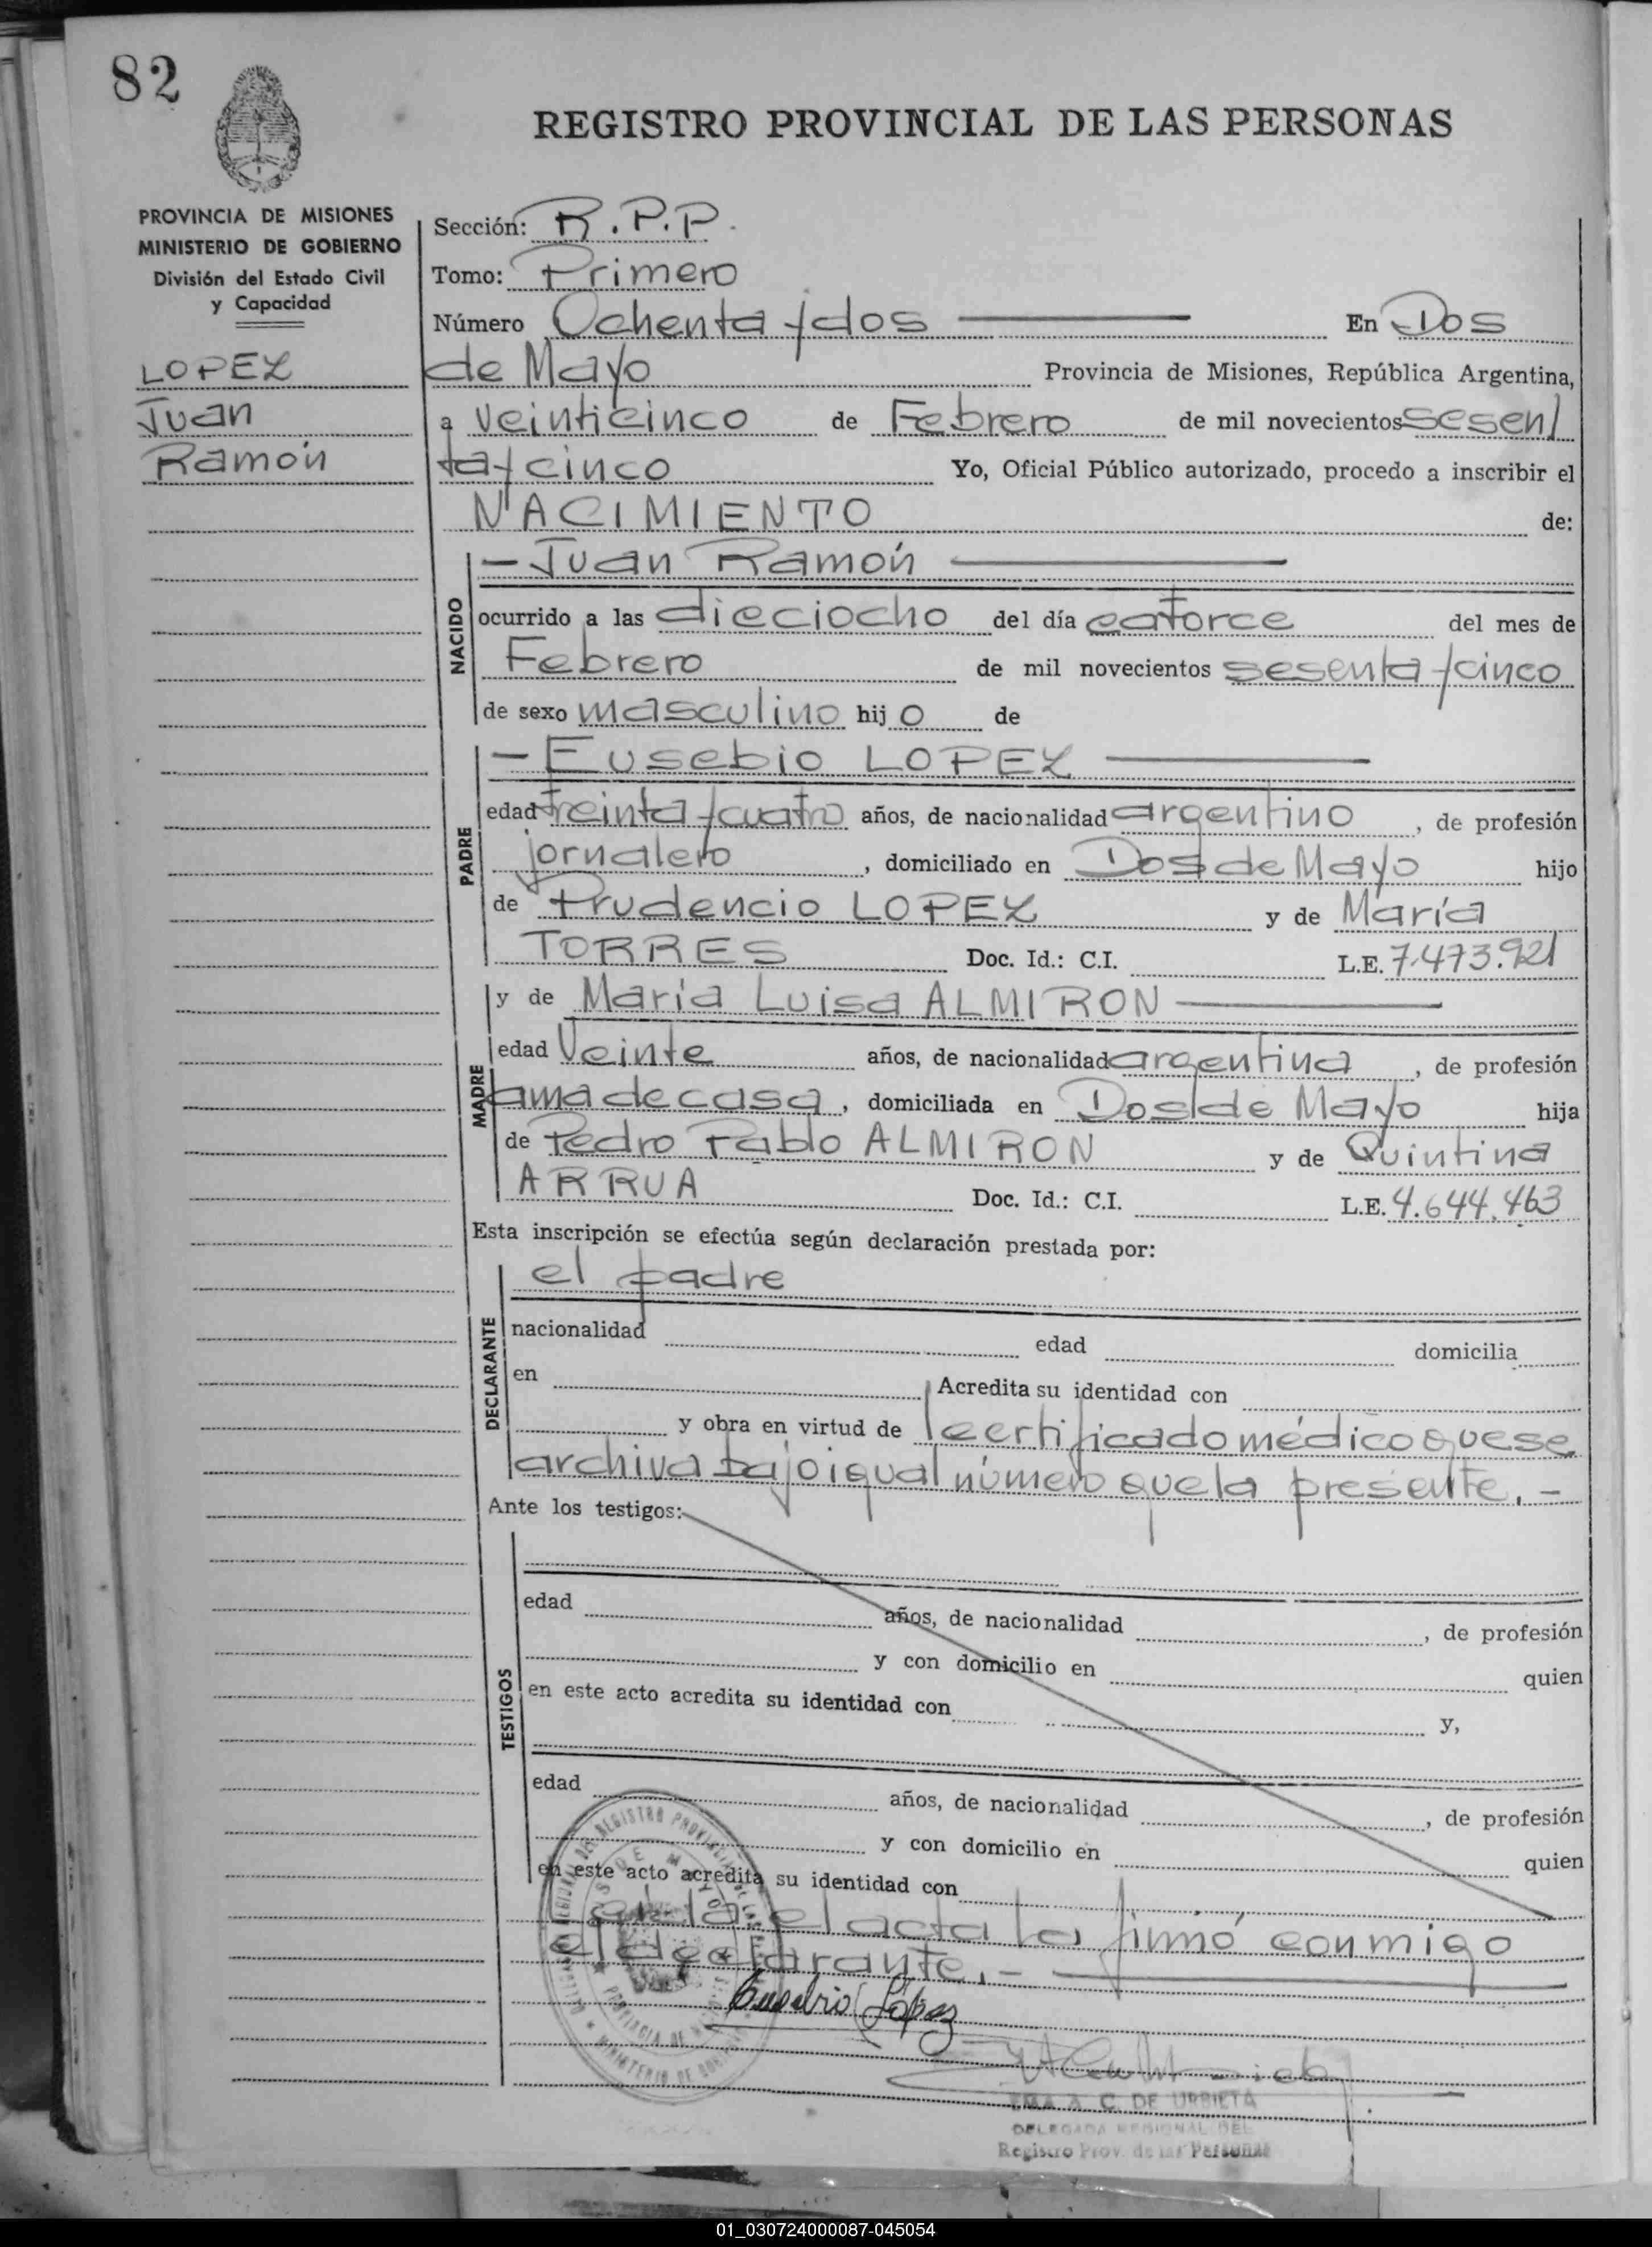 82
REGISTRO PROVINCIAL DE LAS PERSONAS
PROVINCIA DE MISIONES
MINISTERIO DE GOBIERNO
División del Estado Civil
y Capacidad
LOPEZ
Juan
Ramón
Sección: R.P.P.
Tomo: Primero
Número Ochenta y dos En Dos
de Mayo Provincia de Misiones, República Argentina,
a veinticinco de Febrero de mil novecientos sesen/
ta y cinco Yo, Oficial Público autorizado, procedo a inscribir el
NACIMIENTO de:
NACIDO
- Juan Ramón
ocurrido a las dieciocho del día catorce del mes de
Febrero de mil novecientos sesenta y cinco
de sexo masculino hijo de
PADRE
- Eusebio LOPEZ
edad treinta y cuatro años, de nacionalidad argentino, de profesión
jornalero, domiciliado en Dos de Mayo hijo
de Prudencio LOPEZ y de María
TORRES Doc. Id.: C.I. L.E. 7.473.921
MADRE
y de María Luisa ALMIRON
edad Veinte años, de nacionalidad argentina, de profesión
ama de casa, domiciliada en Dos de Mayo hija
de Pedro Pablo ALMIRON y de Quintina
ARRUA Doc. Id.: C.I. L.E. 4.644.463
Esta inscripción se efectúa según declaración prestada por:
DECLARANTE
el padre
nacionalidad edad domicilia
en Acredita su identidad con
y obra en virtud de l certificado médico que se
archiva bajo igual número que la presente.-
Ante los testigos:
TESTIGOS
edad años, de nacionalidad , de profesión
y con domicilio en quien
en este acto acredita su identidad con y,
edad años, de nacionalidad , de profesión
y con domicilio en quien
en este acto acredita su identidad con
el acta la firmó conmigo
el declarante.-
Eusebio Lopez
C. DE URBIETA
DELEGADA REGIONAL DEL
Registro Prov. de las Personas
01_030724000087-045054